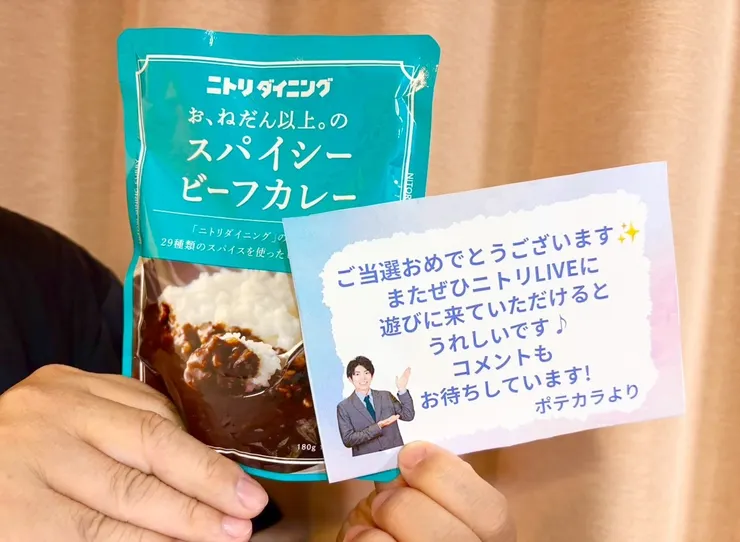 ニトリダイニング
お、ねだん以上。の
スパイシー
ビーフカレー
「ニトリダイニング」の
29種類のスパイスを使った
180g
NITOR
ご当選おめでとうございます✨
またぜひニトリLIVEに
遊びに来ていただけると
うれしいです♪
コメントも
お待ちしています!
ポテカラより